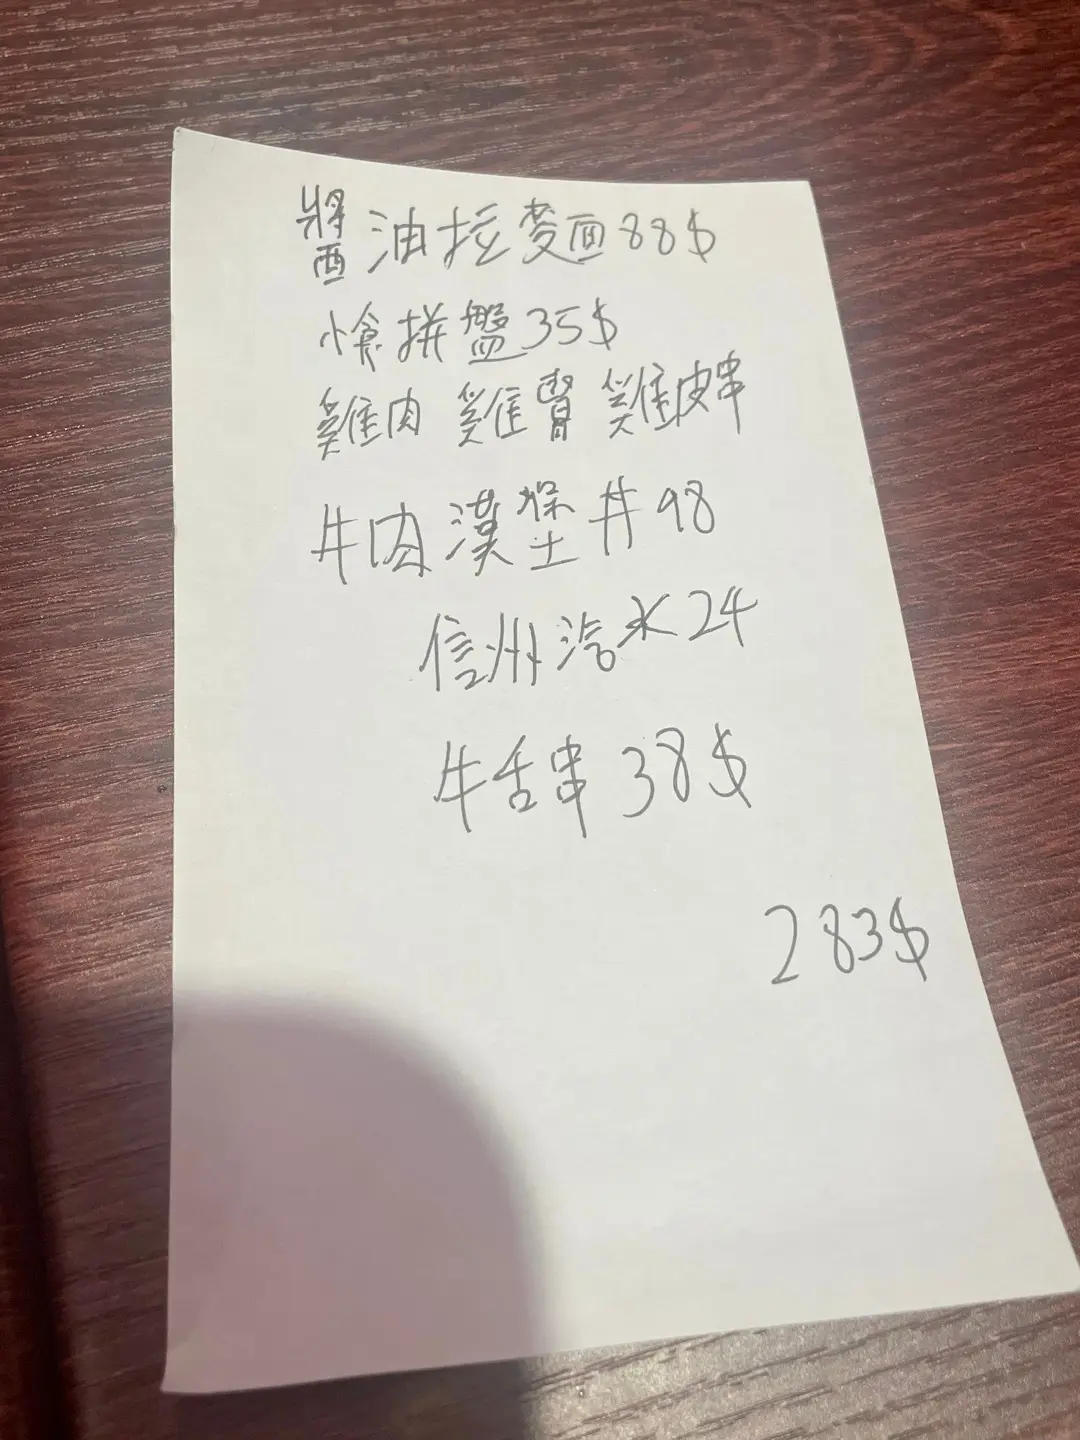 醬油拉麵88$
愴拼盤35$
雞肉 雞腎 雞皮串
牛肉漢堡丼98
信州汽水24
牛舌串38$
283$